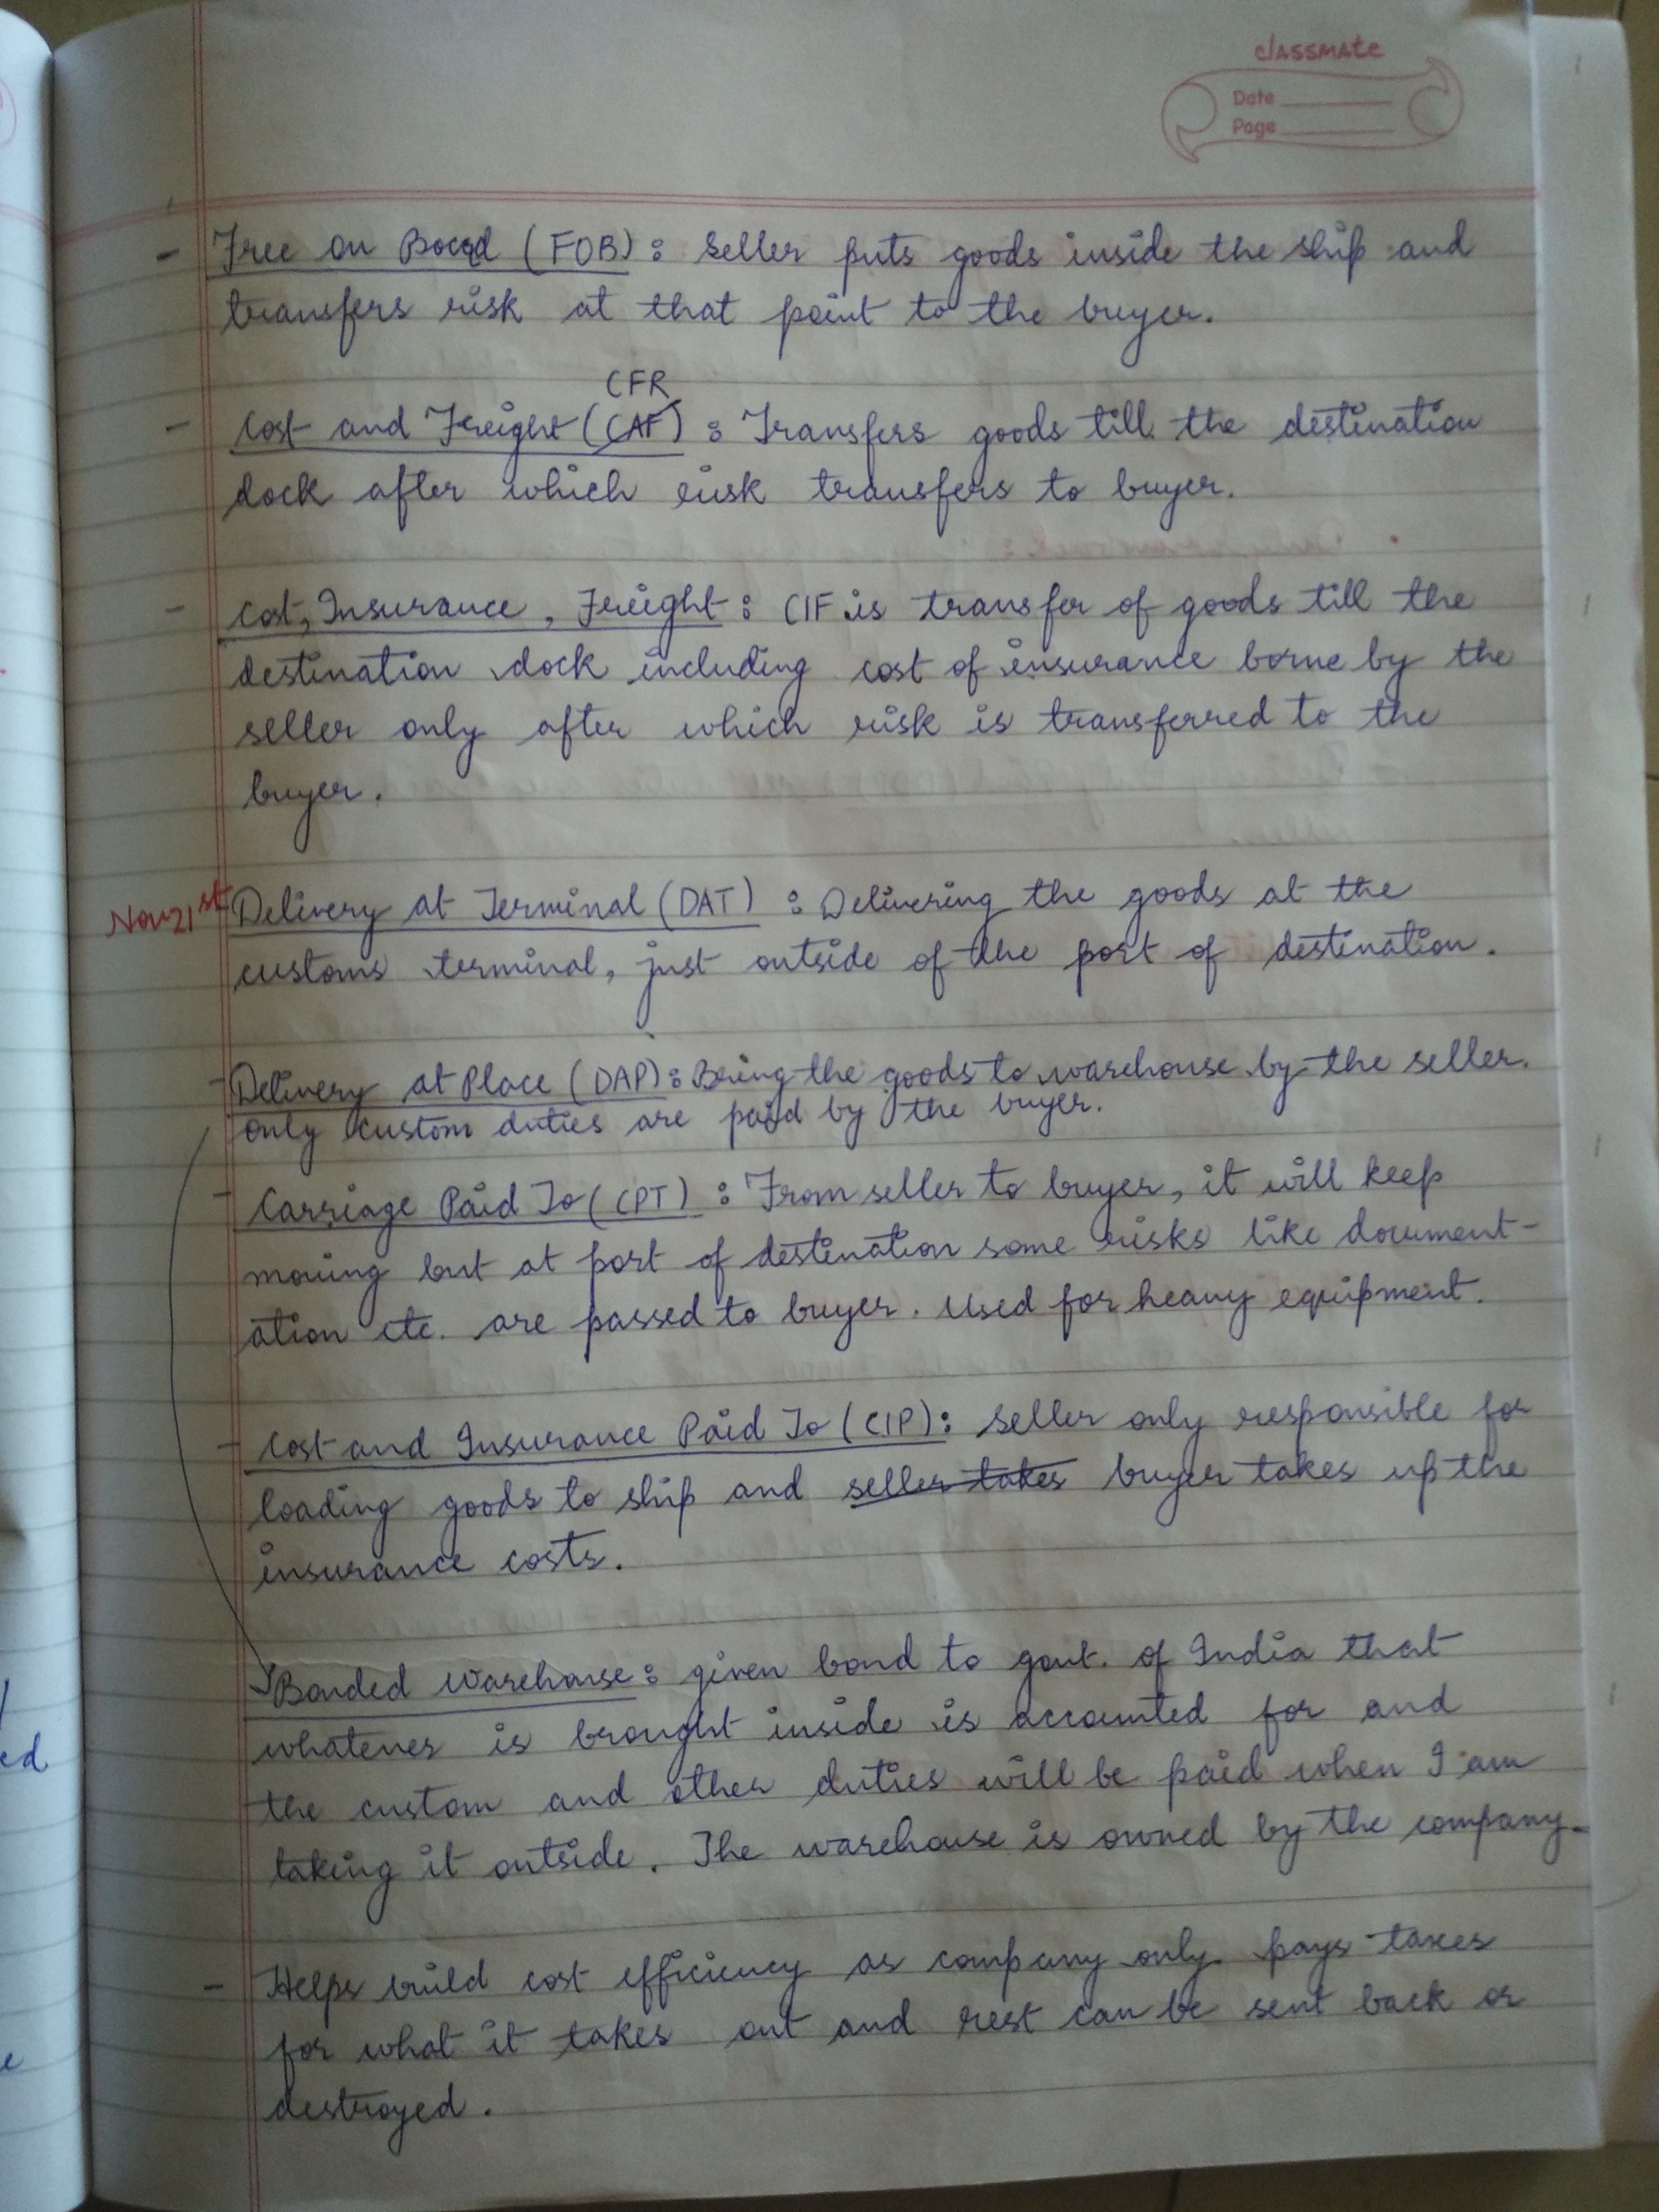 classmate
Date
Page
- Free on Board (FOB) : Seller puts goods inside the ship and
transfers risk at that point to the buyer.
CFR
- Cost and Freight (CAF) : Transfers goods till the destination
dock after which risk transfers to buyer.
- Cost, Insurance, Freight : CIF is transfer of goods till the
destination dock including cost of insurance borne by the
seller only after which risk is transferred to the
buyer.
Nov 21st - Delivery at Terminal (DAT) : Delivering the goods at the
customs terminal, just outside of the port of destination.
- Delivery at Place (DAP) : Bring the goods to warehouse by the seller.
only custom duties are paid by the buyer.
- Carriage Paid To (CPT) : From seller to buyer, it will keep
moving but at port of destination some risks like document-
ation etc. are passed to buyer. Used for heavy equipment.
- Cost and Insurance Paid To (CIP) : Seller only responsible for
loading goods to ship and seller takes buyer takes up the
insurance costs.
Bonded Warehouse : given bond to govt. of India that
whatever is brought inside is accounted for and
the custom and other duties will be paid when I am
taking it outside. The warehouse is owned by the company.
- Helps build cost efficiency as company only pays taxes
for what it takes out and rest can be sent back or
destroyed.
ed
e